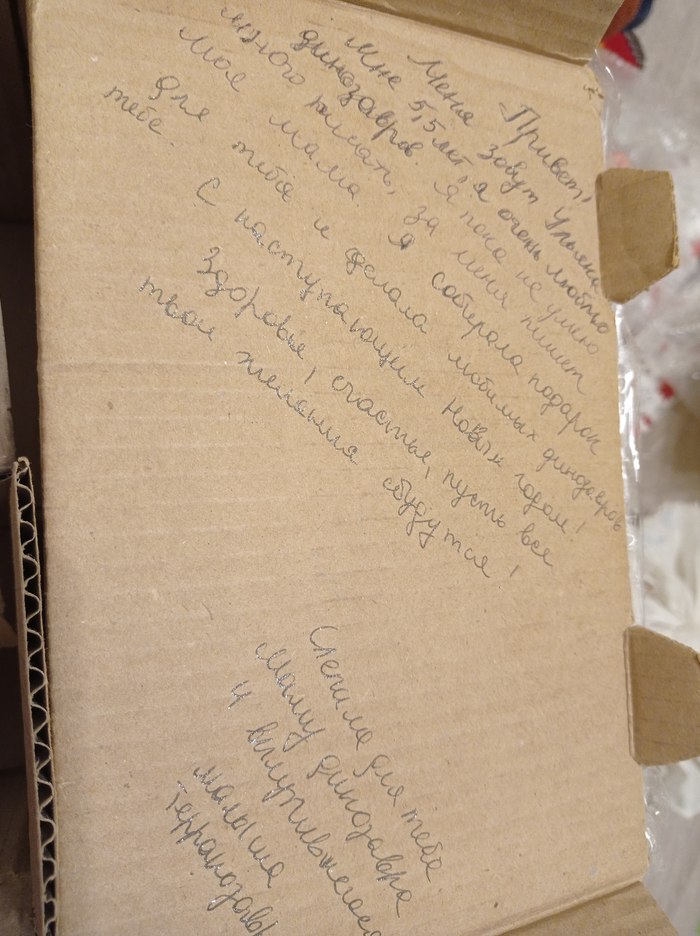 Привет!
Меня зовут Ульяна
Мне 5,5 лет, я очень люблю
динозавров. Я пока не умею
много писать, за меня пишет
моя мама. Я собирала подарок
для тебя и делала любимых динозавров
тебе.
С наступающим Новым годом!
Здоровья, счастья, пусть все
твои желания сбудутся!
Слепила для тебя
Маму динозавра
и вылупившегося
малыша